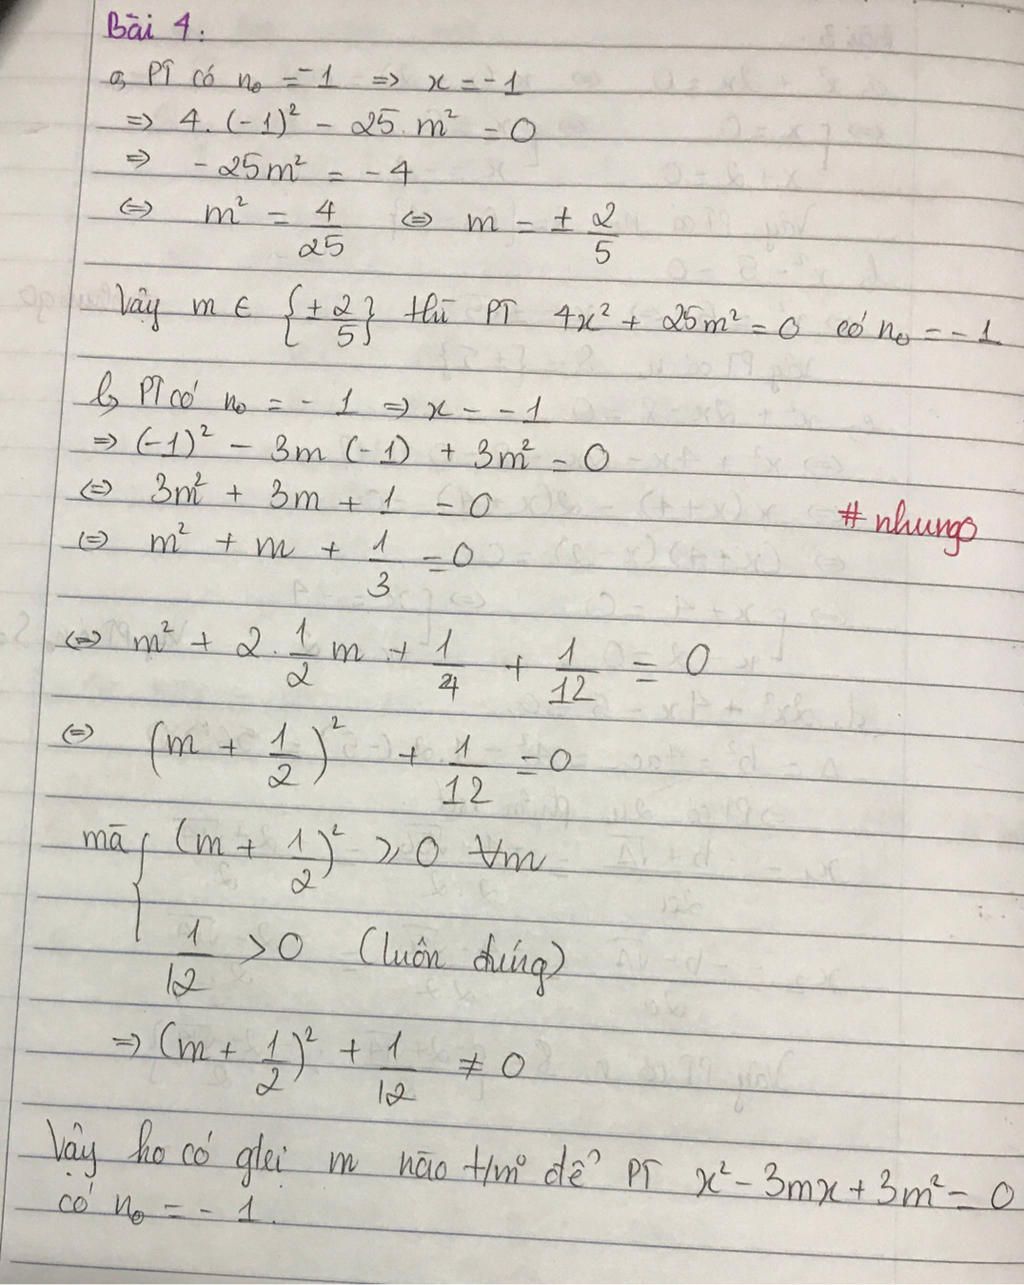 Bài 4:
a, PT có n₀ = -1 => x = -1
=> 4.(-1)² - 25.m² = 0
=> -25m² = -4
<=> m² = 4/25 <=> m = ± 2/5
Vậy m ∈ {± 2/5} thì PT 4x² + 25m² = 0 có n₀ = -1
b, PT có n₀ = -1 => x = -1
=> (-1)² - 3m(-1) + 3m² = 0
<=> 3m² + 3m + 1 = 0
# nhungo
<=> m² + m + 1/3 = 0
<=> m² + 2.1/2m + 1/4 + 1/12 = 0
<=> (m + 1/2)² + 1/12 = 0
mà { (m + 1/2)² ⩾ 0 ∀m
1/12 > 0 (luôn đúng)
=> (m + 1/2)² + 1/12 ≠ 0
Vậy ko có gtri m nào t/m đề PT x² - 3mx + 3m² = 0
có n₀ = -1.